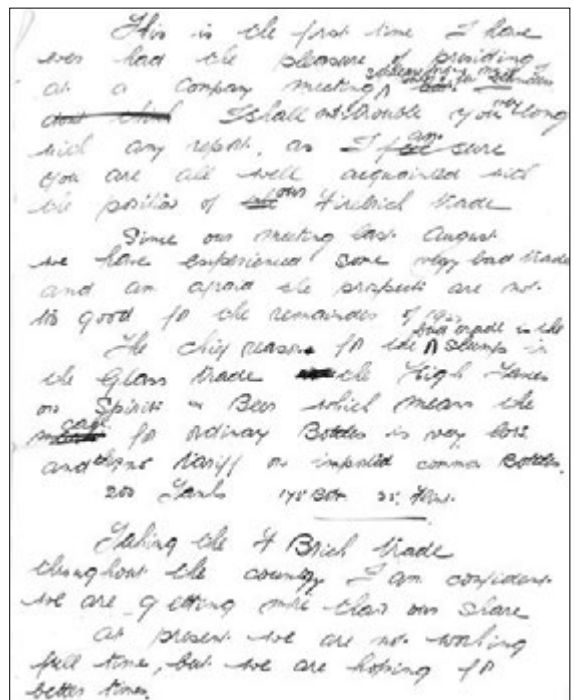 This is the first time I have
ever had the pleasure of presiding
at a Company meeting
I shall not trouble you very long
with any report, as I am sure
you are all well acquainted with
the position of our Firebrick trade
Since our meeting last August
we have experienced some very bad trade
and am afraid the prospects are not
to good for the remainder of
The chief reason for the bad trade is the slump in
the Glass trade the High Taxes
on Spirits & Beer which means the
for ordinary Bottles is very low
and no tariff on imported common Bottles.
200 Tanks 175 Bott 25 Flint
Taking the F Brick trade
throughout the country I am confident
we are getting more than our share
at present we are not working
full time, but we are hoping for
better times.